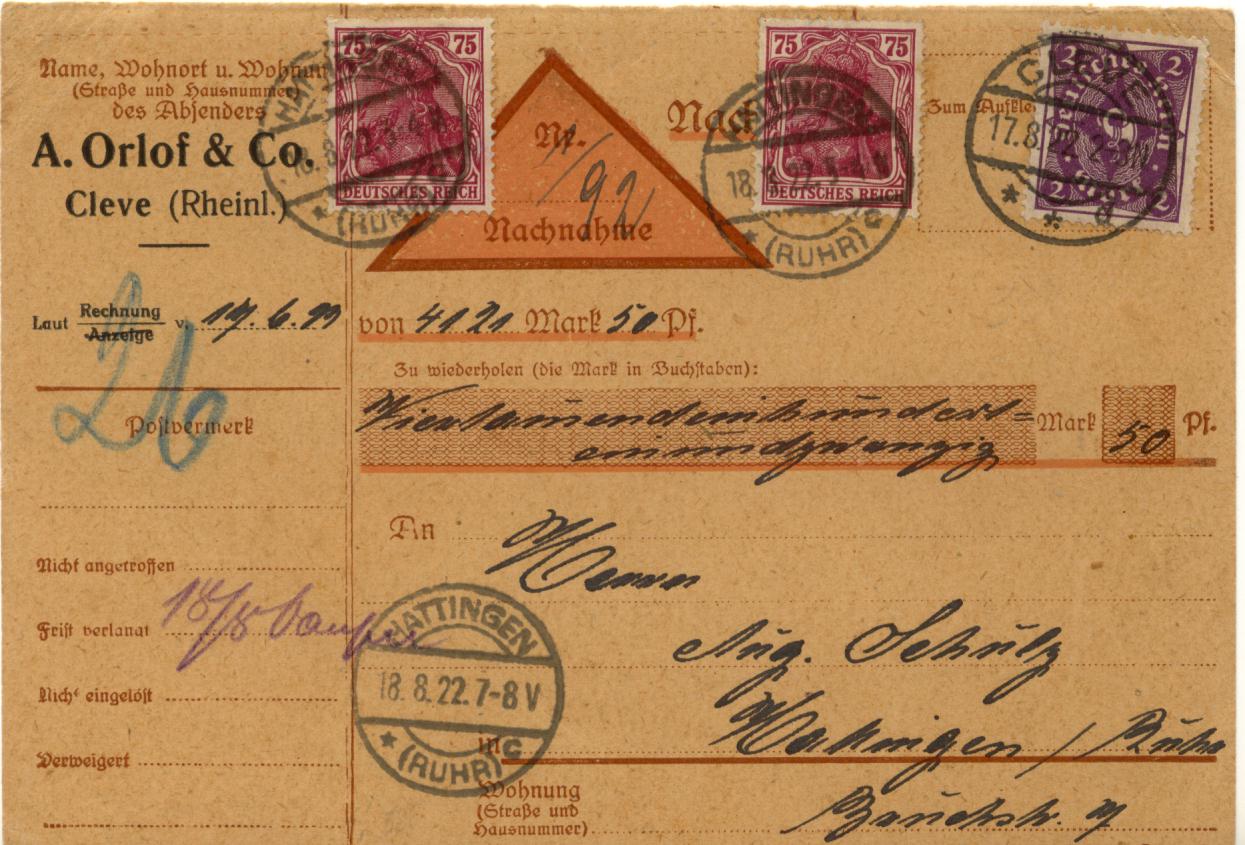 Name, Wohnort u. Wohnun
(Straße und Hausnummer)
des Absenders
A. Orlof & Co.
Cleve (Rheinl.)
75 75
DEUTSCHES REICH
HATTINGEN
18.8.22.3-4 N
* (RUHR) c
Nr.
/92
Nachnahme
Nach
75 75
DEUTSCHES REICH
HATTINGEN
18.8.22.3-4 N
* (RUHR) c
Zum Aufkle
2 2
Deutsche Reichspost
2 2
CLEVE
17.8.22.2-3 N
* * d
Laut Rechnung
Anzeige
v. 17.6.22
von 4121 Mark 50 Pf.
Zu wiederholen (die Mark in Buchstaben):
Viertausendeinhundert=
einundzwanzig
Mark 50 Pf.
26
Postvermerk
An Herrn
Nicht angetroffen
Frist verlangt 18/8
Nicht eingelöst
Verweigert
HATTINGEN
18.8.22.7-8 V
* (RUHR) c
Aug. Schulz
in Hattingen / Ruhr
Wohnung
(Straße und
Hausnummer)
Bruchstr.